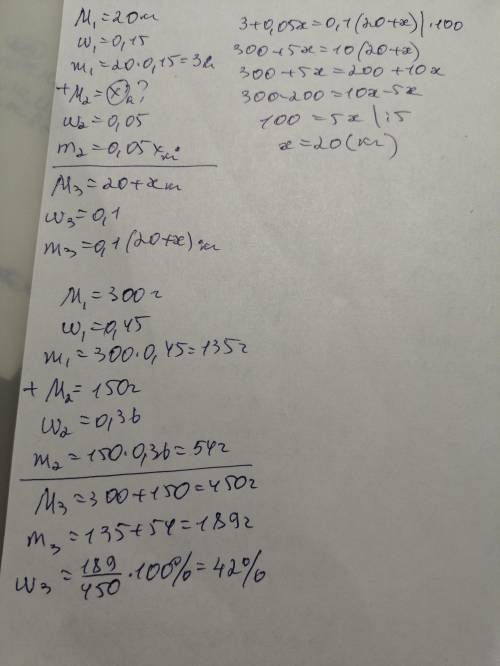 M₁=20кг
w₁=0,15
m₁=20·0,15=3кг
+M₂=x кг?
w₂=0,05
m₂=0,05x кг
M₃=20+x кг
w₃=0,1
m₃=0,1(20+x) кг
3+0,05x=0,1(20+x)|·100
300+5x=10(20+x)
300+5x=200+10x
300-200=10x-5x
100=5x |:5
x=20(кг)
M₁=300г
w₁=0,45
m₁=300·0,45=135г
+M₂=150г
w₂=0,36
m₂=150·0,36=54г
M₃=300+150=450г
m₃=135+54=189г
w₃=189/450·100%=42%